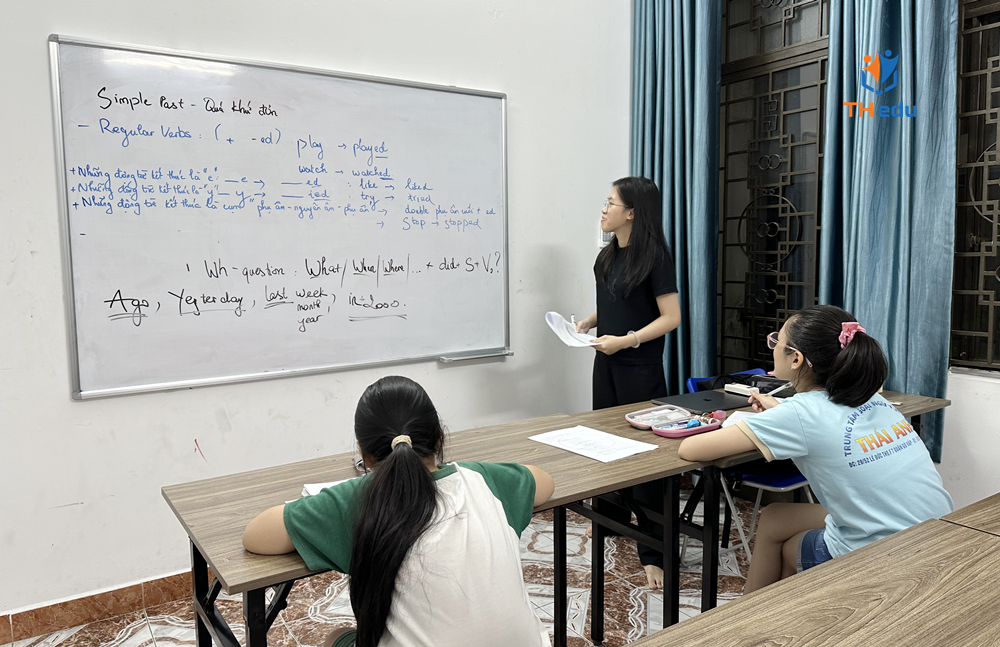 Simple Past - Quá khứ đơn
- Regular Verbs : ( + -ed) play → played
watch → watched
+ Những động từ kết thúc là "e": __e → __ed : like → liked
+ Những động từ kết thúc là "y" __y → __ied : try → tried
+ Những động từ kết thúc là cụm "phụ âm - nguyên âm - phụ âm" → double phụ âm cuối + ed
→ Stop → stopped
-
Wh-question : What/ When/ Where/... + did + S + V₀?
Ago, Yesterday, last week, in + 2000.
month
year
TH edu
TRUNG TÂM NGOẠI NGỮ
THÁI ANH